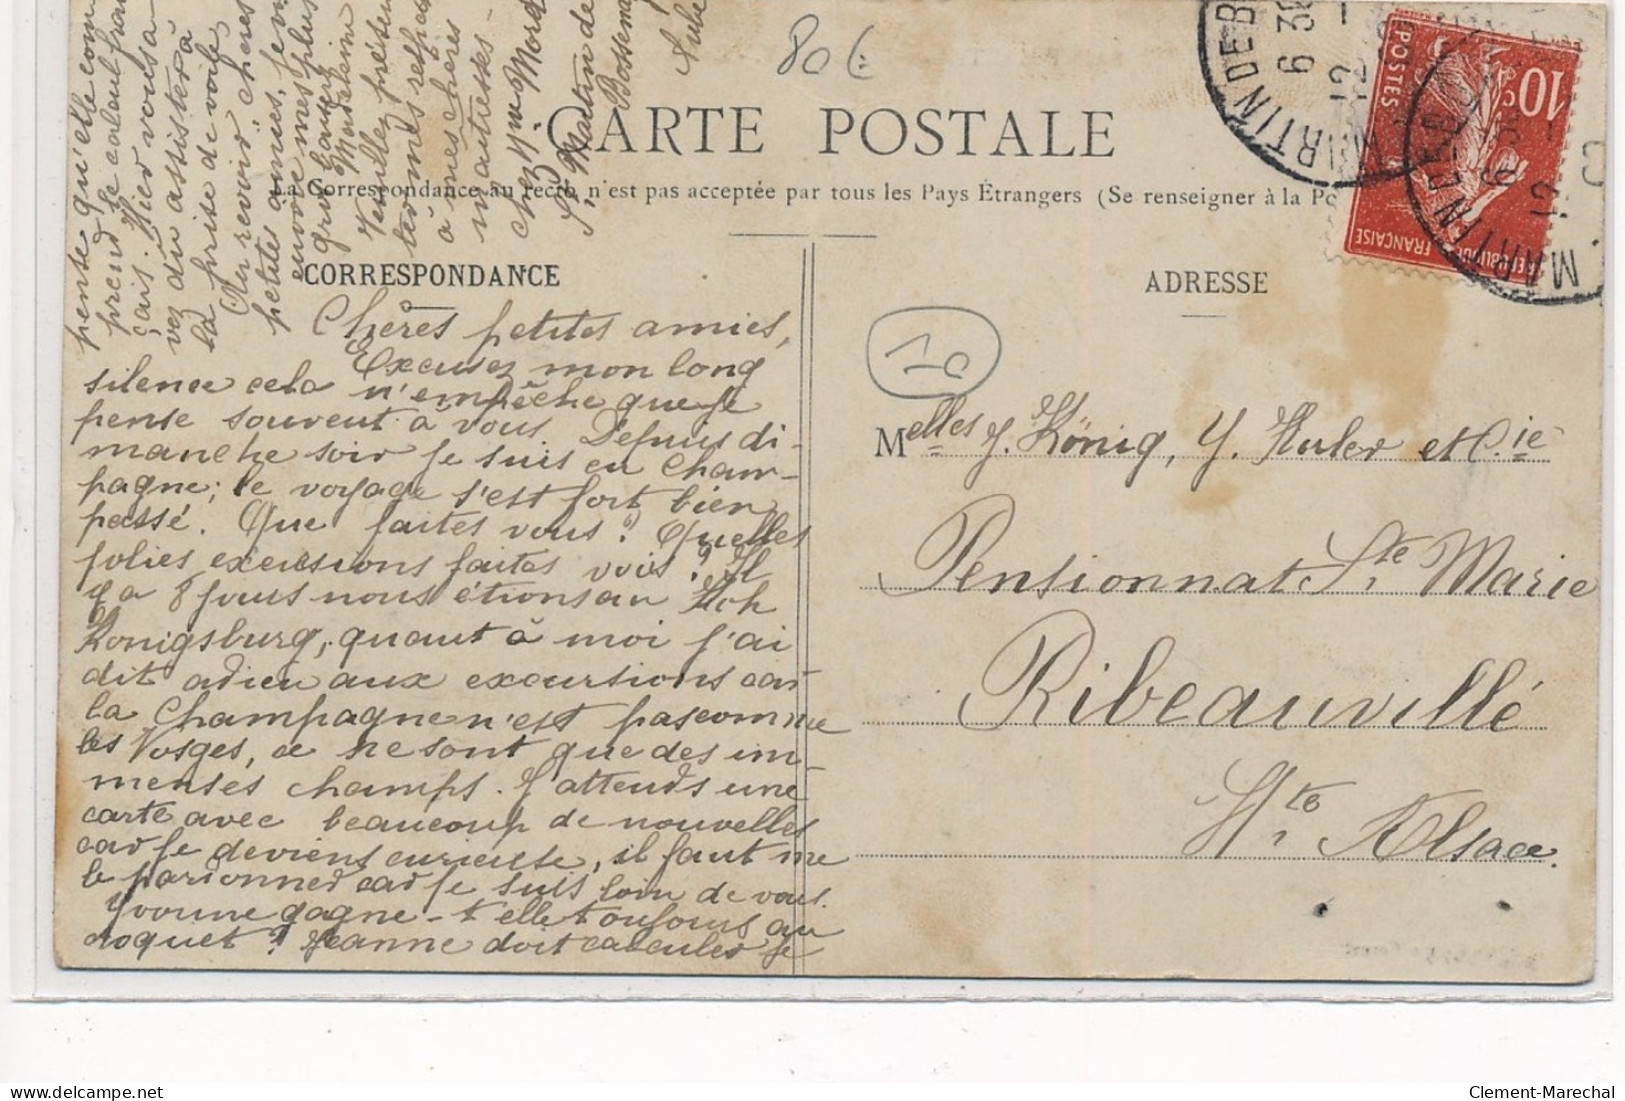 80 €
CARTE POSTALE
La Correspondance au recto n'est pas acceptée par tous les Pays Étrangers (Se renseigner à la Po
CORRESPONDANCE
ADRESSE
10c
POSTES
REPUBLIQUE FRANÇAISE
MARTIN DE B
6 30
12
MARTIN DE B
10
Chères petites amies,
Excusez mon long
silence cela n'empêche que je
pense souvent à vous. Depuis di-
manche soir je suis en Cham-
pagne; le voyage s'est fort bien
passé. Que faites vous? Quelles
jolies excursions faites vous? Il
y a 8 jours nous étions au Hoh
Konigsburg, quant à moi j'ai
dit adieu aux excursions car
la Champagne n'est pas comme
les Vosges, ce ne sont que des im-
menses champs. J'attends une
carte avec beaucoup de nouvelles
car je deviens curieuse, il faut me
le pardonner car je suis loin de vous.
Yvonne gagne-t'elle toujours au
croquet? Jeanne doit calculer je
pense qu'elle com
prend le calcul fran
çais. Hier vous a-
vez dû assister à
la prise de voile
Au revoir chères
petites amies, je v
envoie mes plus
gros baisers
Madeleine
Veuillez présen
ter mes respec
à mes chères
maitresses-
Chez Mme Morel
St Martin de
Bossenay
Aube
Melles J. König, Y. Huler et Cie
Pensionnat Ste Marie
Ribeauvillé
Hte Alsace.
Clement-Marechal
delcampe.net